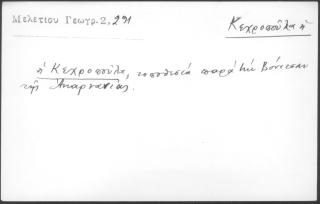 Μελετίου Γεωγρ. 2, 291
Κεχροπούλα ἡ
ἡ Κεχροπούλα, τοποθεσία παρὰ τὴν Βόνιτσαν
τῆς Ἀκαρνανίας.